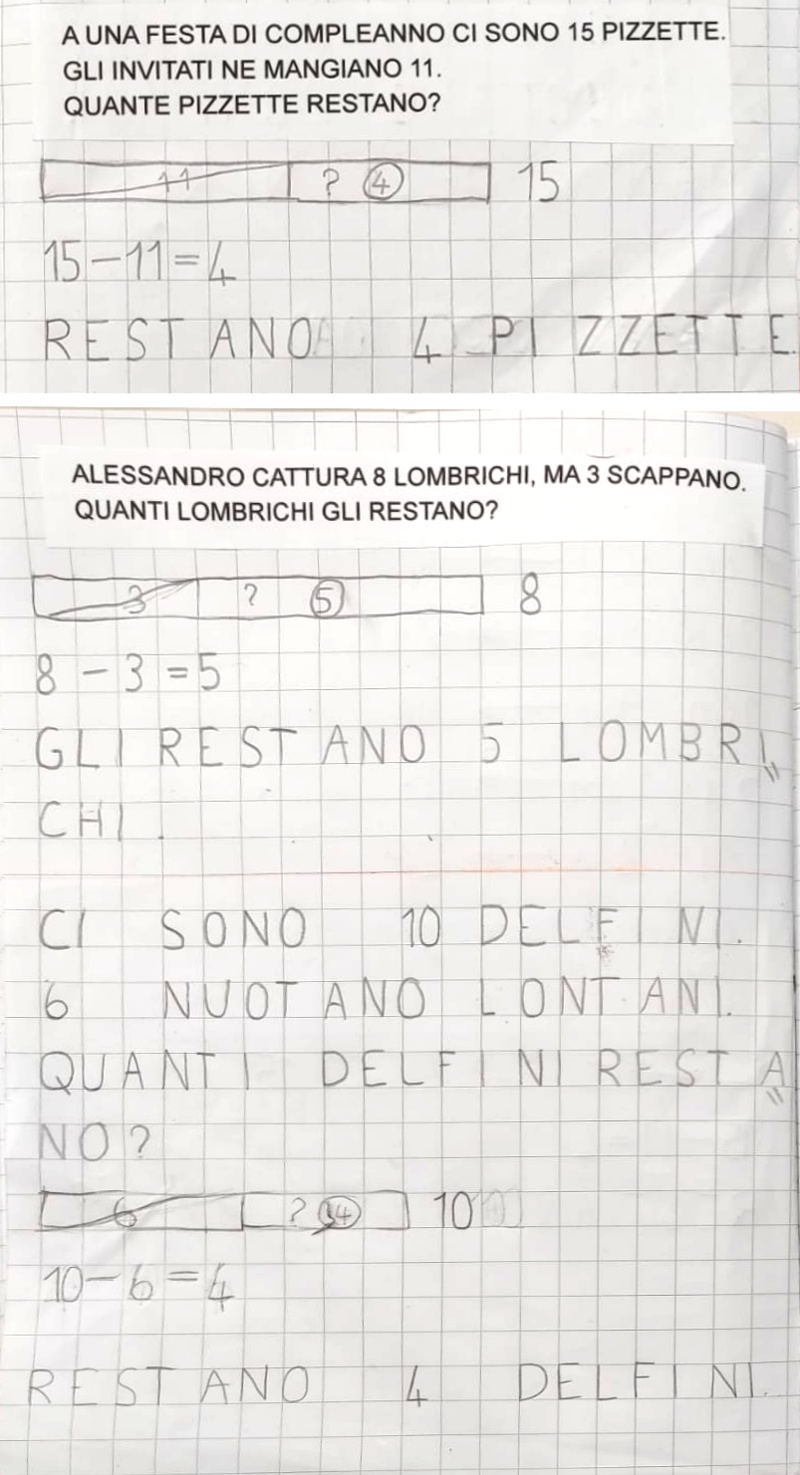 A UNA FESTA DI COMPLEANNO CI SONO 15 PIZZETTE.
GLI INVITATI NE MANGIANO 11.
QUANTE PIZZETTE RESTANO?
11 ? 4 15
15-11=4
RESTANO 4 PIZZETTE.
ALESSANDRO CATTURA 8 LOMBRICHI, MA 3 SCAPPANO.
QUANTI LOMBRICHI GLI RESTANO?
3 ? 5 8
8-3=5
GLI RESTANO 5 LOMBRI
CHI.
CI SONO 10 DELFINI.
6 NUOTANO LONTANI.
QUANTI DELFINI RESTA
NO?
6 ? 4 10
10-6=4
RESTANO 4 DELFINI.